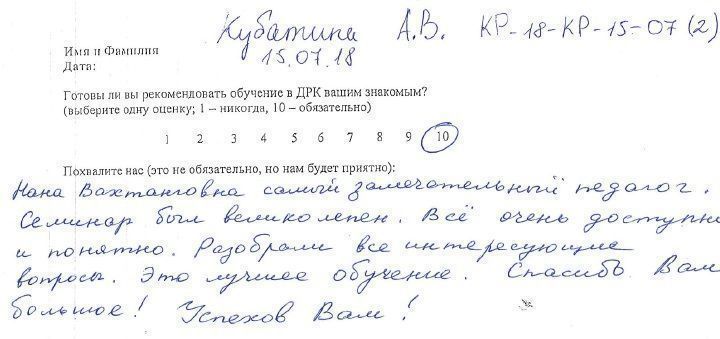 Кубатина А.В. КР-18-КР-15-07 (2)
Имя и Фамилия
15.07.18
Дата:
Готовы ли вы рекомендовать обучение в ДРК вашим знакомым?
(выберите одну оценку; 1 – никогда, 10 – обязательно)
1 2 3 4 5 6 7 8 9 10
Похвалите нас (это не обязательно, но нам будет приятно):
Нана Вахтанговна самый замечательный педагог.
Семинар был великолепен. Всё очень доступно
и понятно. Разобрали все интересующие
вопросы. Это лучшее обучение. Спасибо Вам
большое! Успехов Вам!